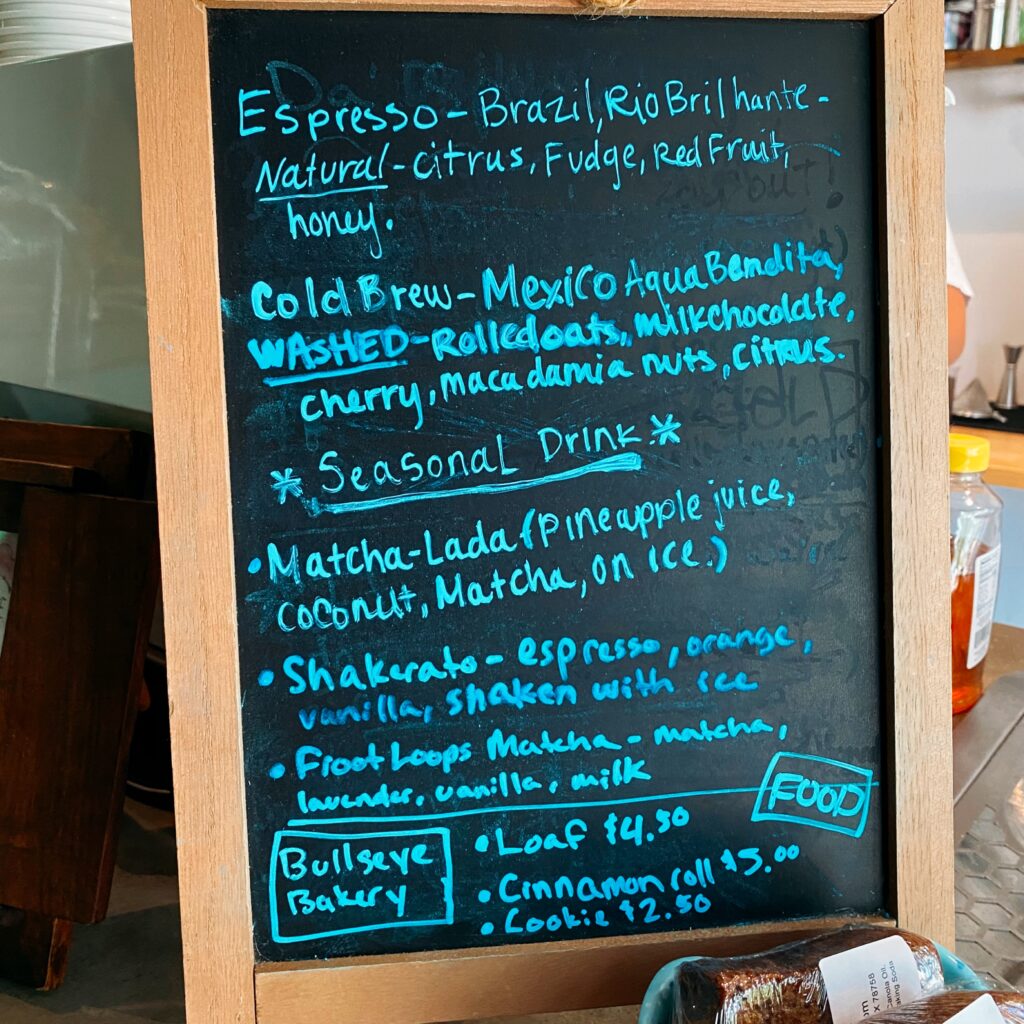 Espresso - Brazil, Rio Brilhante -
Natural - citrus, Fudge, Red Fruit,
honey.
Cold Brew - Mexico Agua Bendita,
WASHED - Rolled oats, milk chocolate,
cherry, macadamia nuts, citrus.
* Seasonal Drink *
• Matcha-Lada (Pineapple juice,
coconut, Matcha, on ice.)
• Shakerato - espresso, orange,
vanilla, shaken with ice
• Froot Loops Matcha - matcha,
lavender, vanilla, milk
FOOD
Bullseye
Bakery
• Loaf $4.50
• Cinnamon roll $5.00
• Cookie $2.50
78758
Canola Oil,